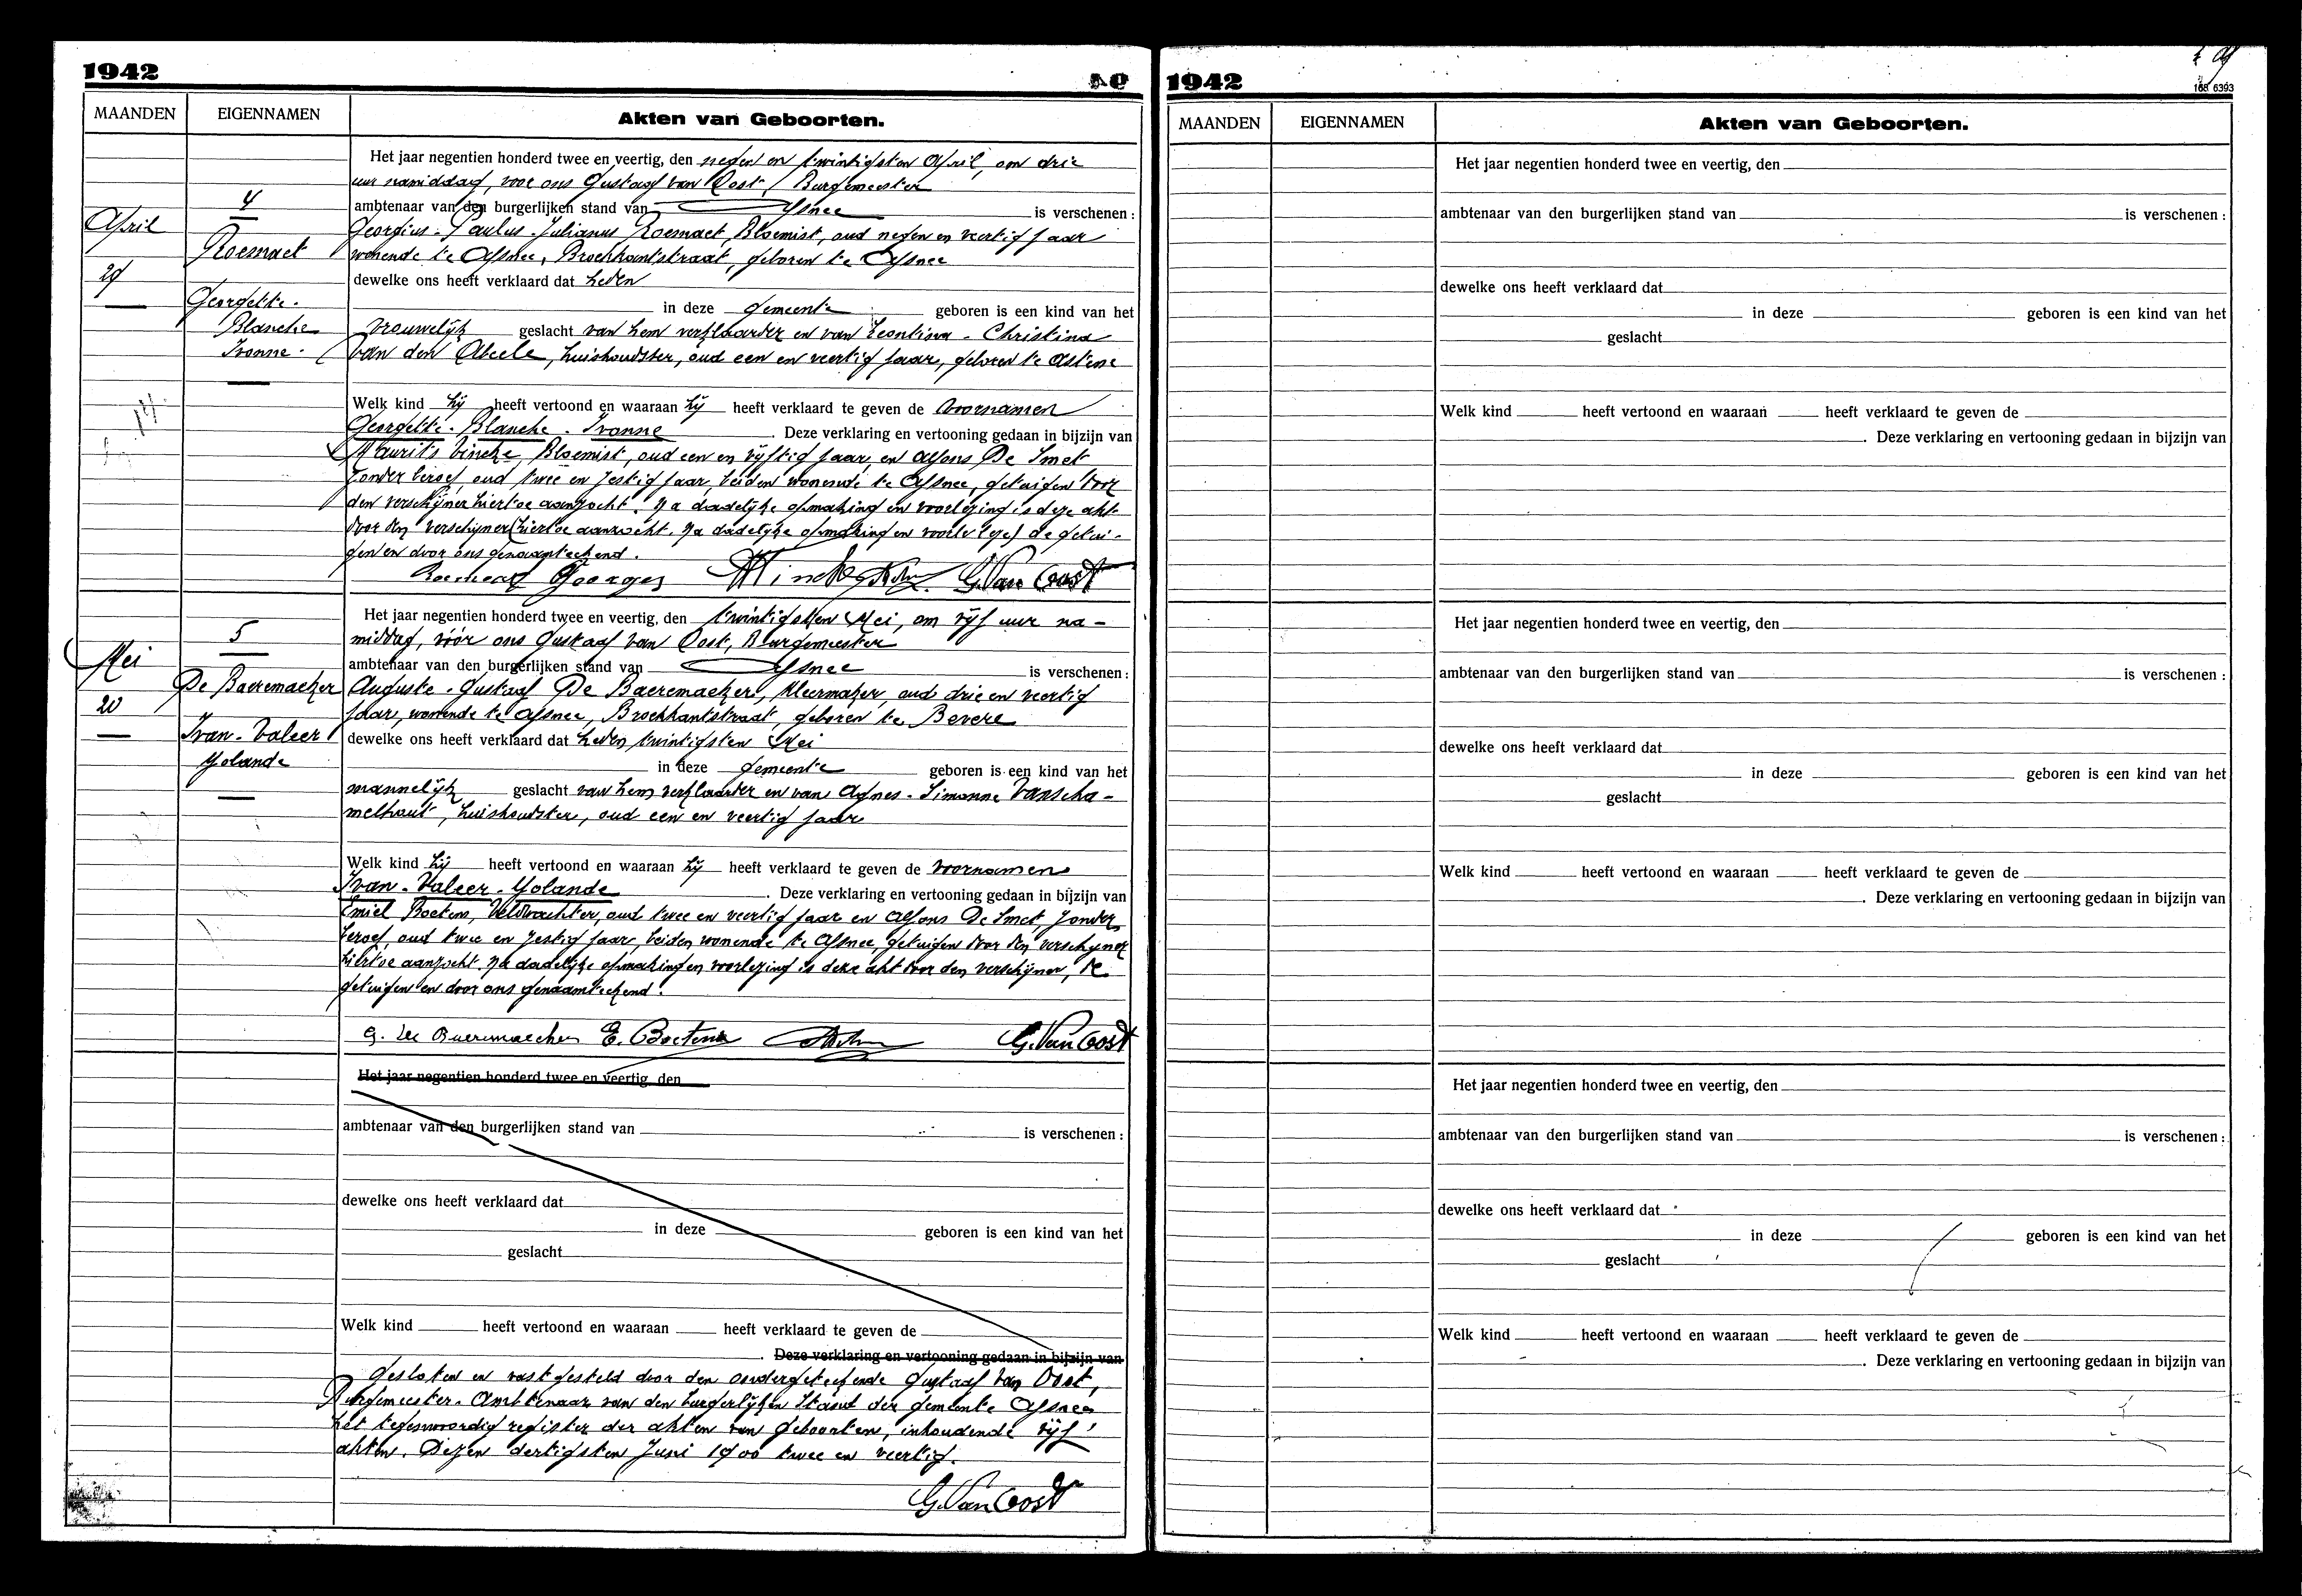 1942
MAANDEN
EIGENNAMEN
Akten van Geboorten.
Het jaar negentien honderd twee en veertig, den negen en twintigsten April, om drie
uur namiddag, voor ons Gustaaf Van Oost, Burgemeester
4
ambtenaar van den burgerlijken stand van Afsnee is verschenen :
April
Georgius - Paulus - Julianus Roesnaet, Bloemist, oud negen en veertig jaar
Roesnaet
wonende te Afsnee, Broekkantstraat, geboren te Afsnee
29
dewelke ons heeft verklaard dat heden
Georgette -
in deze gemeente geboren is een kind van het
Blanche
Vrouwelijk geslacht van hem verklaarder en van Leontina - Christina
Ivonne -
Van den Abeele, huishoudster, oud een en veertig jaar, geboren te Astene
Welk kind hij heeft vertoond en waaraan hij heeft verklaard te geven de Voornamen
Georgette - Blanche - Ivonne. Deze verklaring en vertooning gedaan in bijzijn van
Maurits Vincke, Bloemist, oud een en vijftig jaar, en Alfons De Smet
zonder beroep, oud twee en zestig jaar, beiden wonende te Afsnee, getuigen door
den verschijner hiertoe aanzocht. Na dadelijke opmaking en voorlezing is deze akt
door den verschijner (hiertoe aanzocht. Na dadelijke opmaking en voorle de getui-
gen en door ons genaamteekend.
Roesnaet Georges MVincke G. Van Oost
Het jaar negentien honderd twee en veertig, den twintigsten Mei, om vijf uur na -
5
middag, vóór ons Gustaaf Van Oost, Burgemeester
Mei
ambtenaar van den burgerlijken stand van Afsnee is verschenen :
De Baeremaeker
Auguste - Gustaaf De Baeremaeker, Kleermaker, oud drie en veertig
20
jaar, wonende te Afsnee, Broekkantstraat, geboren te Bevere
Ivan - Valeer
dewelke ons heeft verklaard dat heden twintigsten Mei
Yolande
in deze gemeente geboren is een kind van het
mannelijk geslacht van hem verklaarder en van Agnes - Simonne Vanscha -
melhout, huishoudster, oud een en veertig jaar
Welk kind hij heeft vertoond en waaraan hij heeft verklaard te geven de Voornamen
Ivan - Valeer - Yolande. Deze verklaring en vertooning gedaan in bijzijn van
Emiel Boetens, Veldwachter, oud twee en veertig jaar en Alfons De Smet, zonder
beroep, oud twee en zestig jaar, beiden wonende te Afsnee, getuigen door den verschijner
hiertoe aanzocht. Na dadelijke opmaking en voorlezing is deze akt door den verschijner, de
getuigen en door ons genaamteekend.
G. De Baeremaeker E. Boetens G. Van Oost
Het jaar negentien honderd twee en veertig, den
ambtenaar van den burgerlijken stand van is verschenen :
dewelke ons heeft verklaard dat
in deze geboren is een kind van het
geslacht
Welk kind heeft vertoond en waaraan heeft verklaard te geven de
. Deze verklaring en vertooning gedaan in bijzijn van
Gesloten en vastgesteld door den ondergeteekende Gustaaf Van Oost,
Burgemeester - Ambtenaar van den burgerlijken Stand der gemeente Afsnee
het tegenwoordig register der akten van geboorten, inhoudende vijf
akten. Dezen dertigsten Juni 1900 twee en veertig.
G. Van Oost
1942
168 6393
MAANDEN
EIGENNAMEN
Akten van Geboorten.
Het jaar negentien honderd twee en veertig, den
ambtenaar van den burgerlijken stand van is verschenen :
dewelke ons heeft verklaard dat
in deze geboren is een kind van het
geslacht
Welk kind heeft vertoond en waaraan heeft verklaard te geven de
. Deze verklaring en vertooning gedaan in bijzijn van
Het jaar negentien honderd twee en veertig, den
ambtenaar van den burgerlijken stand van is verschenen :
dewelke ons heeft verklaard dat
in deze geboren is een kind van het
geslacht
Welk kind heeft vertoond en waaraan heeft verklaard te geven de
. Deze verklaring en vertooning gedaan in bijzijn van
Het jaar negentien honderd twee en veertig, den
ambtenaar van den burgerlijken stand van is verschenen :
dewelke ons heeft verklaard dat
in deze geboren is een kind van het
geslacht
Welk kind heeft vertoond en waaraan heeft verklaard te geven de
. Deze verklaring en vertooning gedaan in bijzijn van